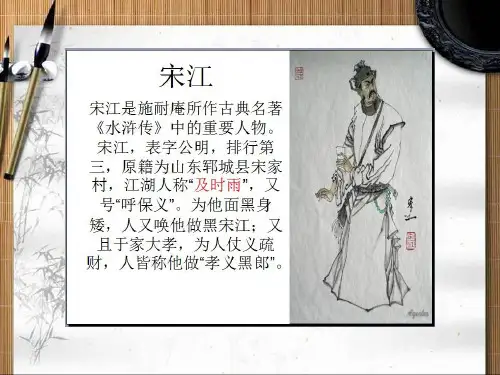 宋江
宋江是施耐庵所作古典名著
《水浒传》中的重要人物。
宋江，表字公明，排行第
三，原籍为山东郓城县宋家
村，江湖人称“及时雨”，又
号“呼保义”。为他面黑身
矮，人又唤他做黑宋江；又
且于家大孝，为人仗义疏
财，人皆称他做“孝义黑郎”。
宋江